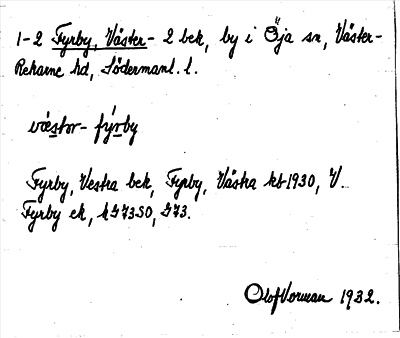 1-2 Fyrby, Väster- 2 bek, by i Öja sn, Väster-
Rekarne hd, Södermanl. l.
væstər- fy̌rby
Fyrby, Vestra bek, Fyrby, Västra kb 1930, V.
Fyrby ek, k G73SO, G73.
Olof Vorman 1932.